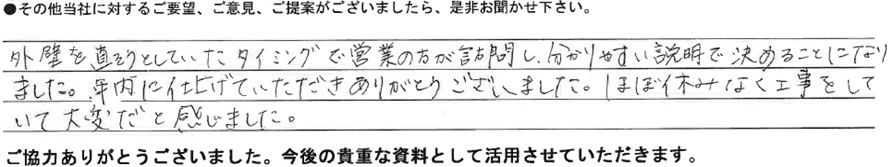 ●その他当社に対するご要望、ご意見、ご提案がございましたら、是非お聞かせ下さい。
外壁を直そうとしていたタイミングで営業の方が訪問し、分かりやすい説明で決めることになり
ました。年内に仕上げていただきありがとうございました。ほぼ休みなく工事をして
いて大変だと感じました。
ご協力ありがとうございました。今後の貴重な資料として活用させていただきます。